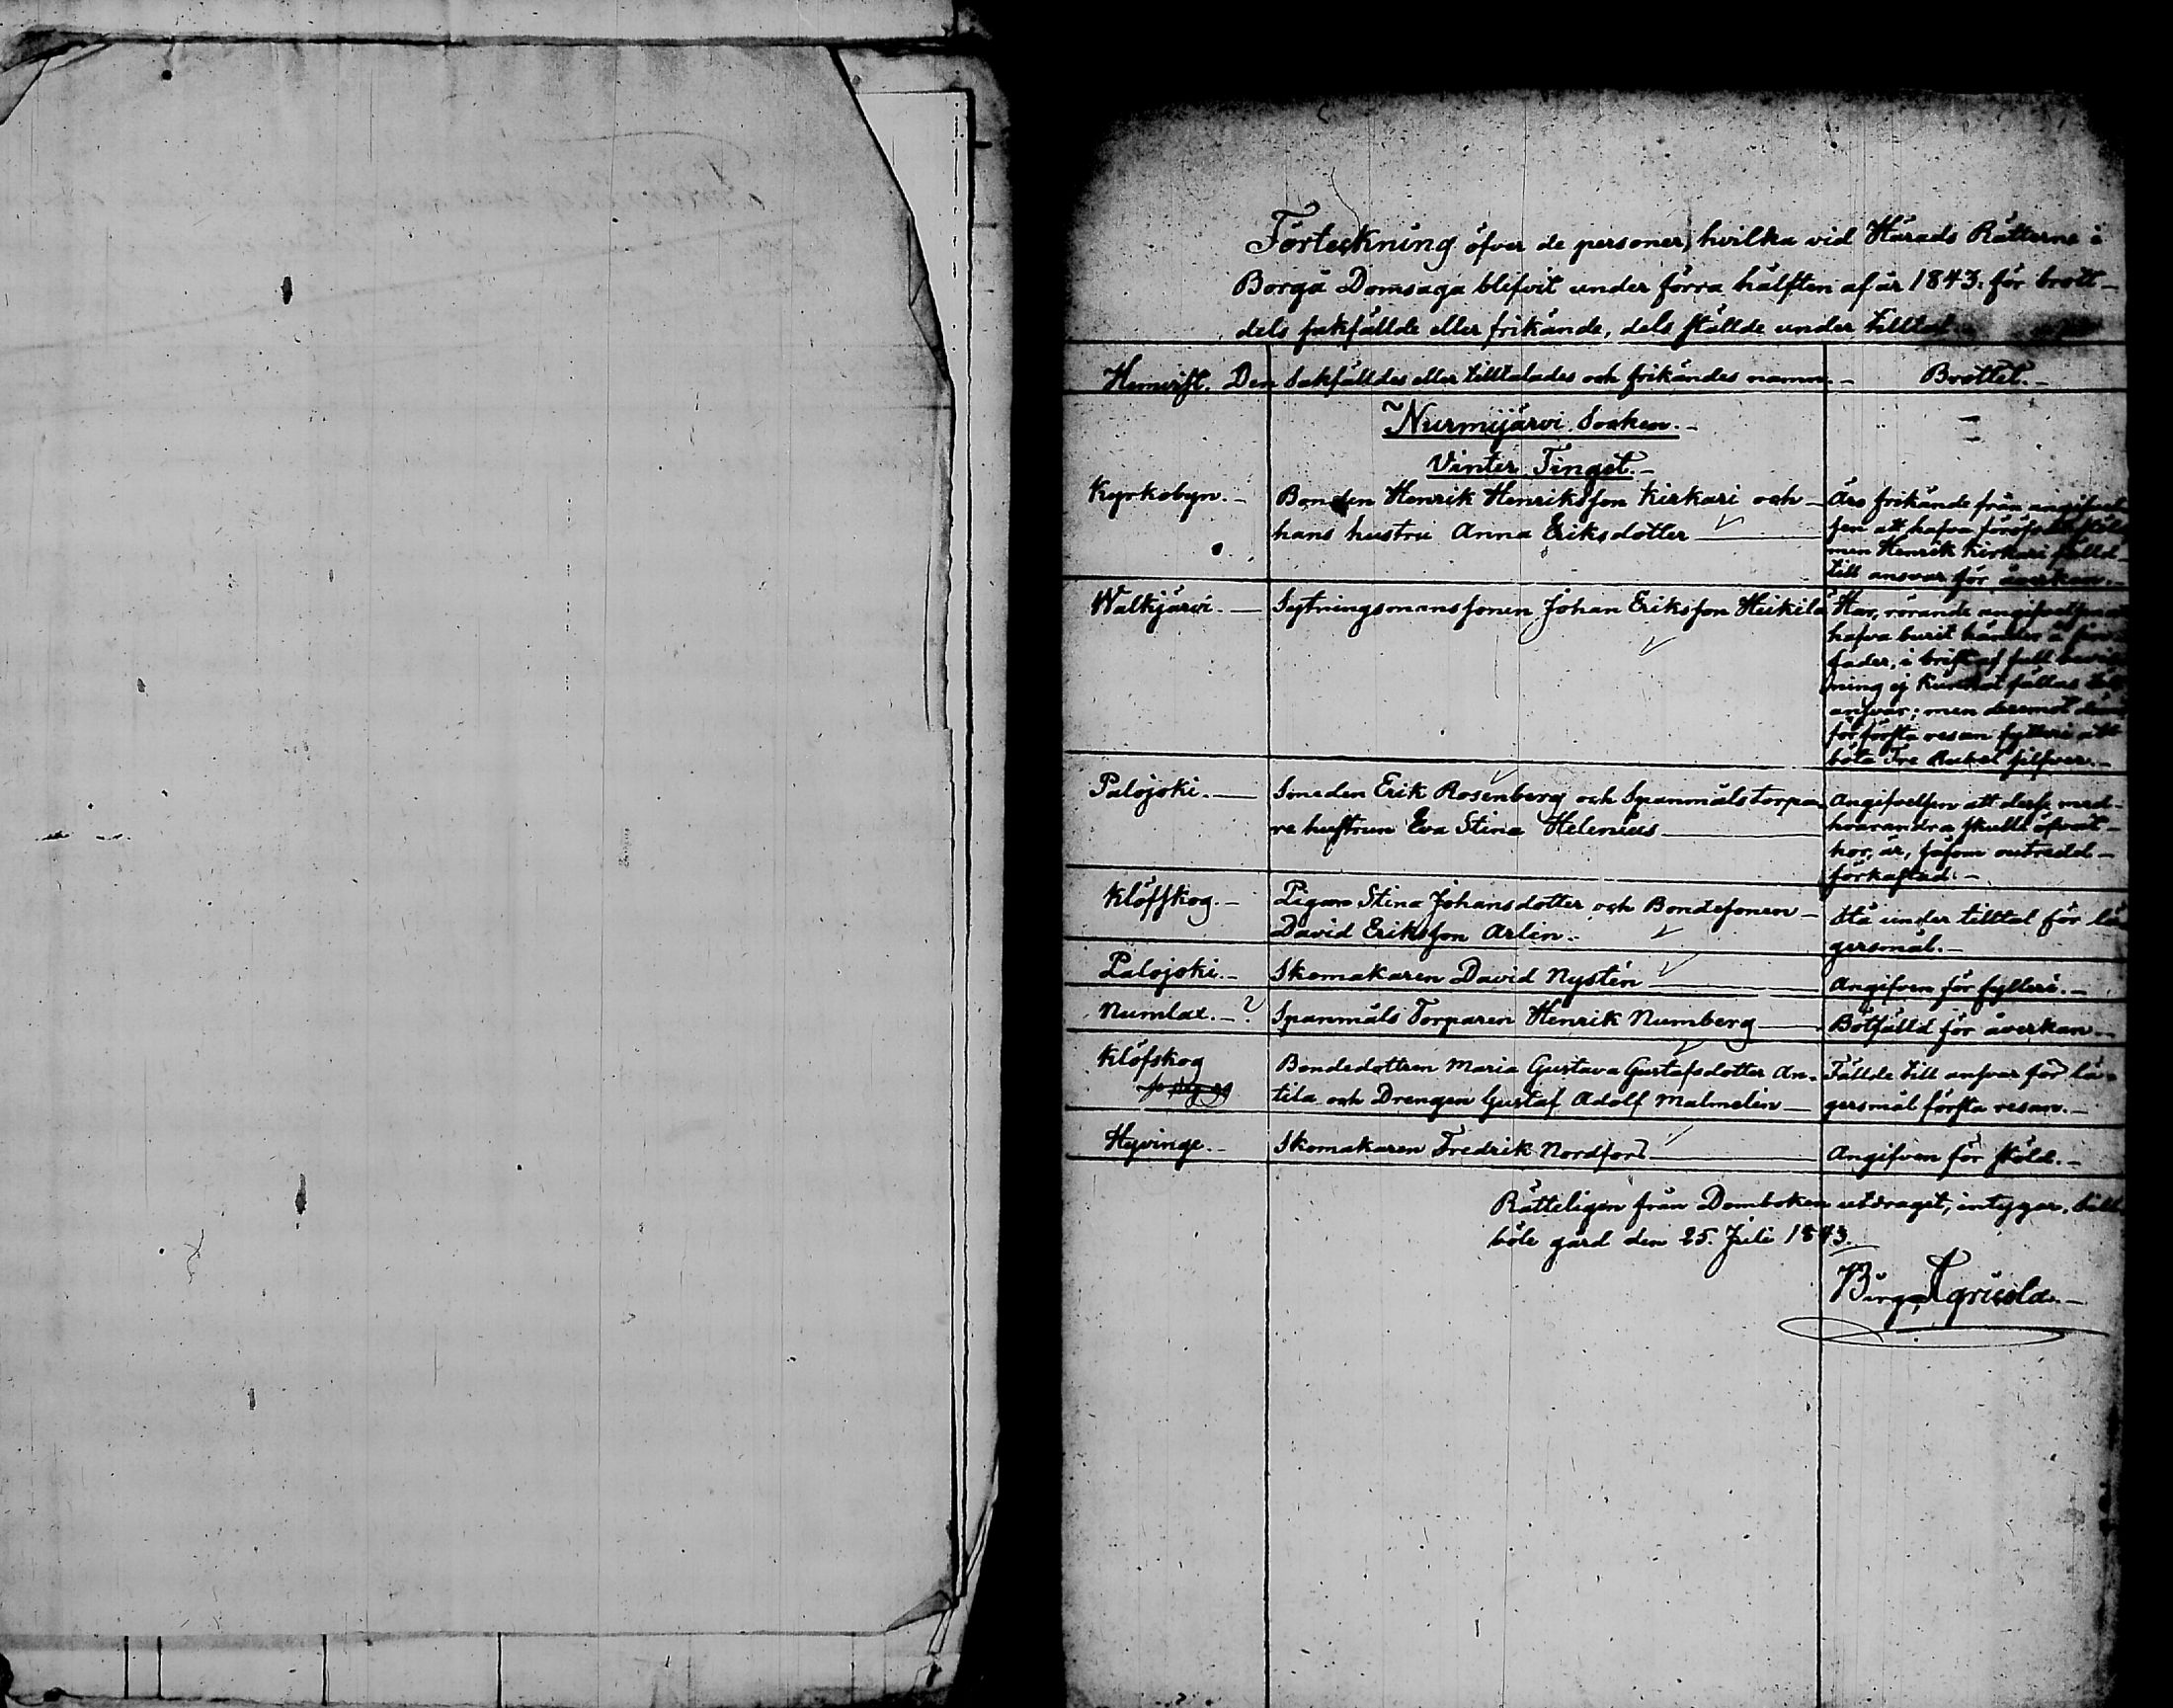 Förteckning öfver de personer, hvilka vid Härads Rätterne i
Borgå Domsaga blifvit under förra hälften af år 1843. för brott
dels sakfällde eller frikände, dels ställde under tilltal
Hemvist. Den Sakfälldes eller tilltalades och frikändes namn. Brottet.
Nurmijärvi Socken.
Vinter Tinget.
Kyrkobyn. Bonden Henrik Henriksson Kirkari och
hans hustru Anna Eriksdotter
Äro frikände från angifvel-
sen att hafva föröfvat stöld
men Henrik Kirkari fälld
till ansvar för åverkan.
Walkjärvi. Sytningsmanssonen Johan Eriksson Heikilä
Har, rörande angifvelsen att
hafva burit händer å sin
fader, i brist af full bevis-
ning ej kunnat fällas till
ansvar; men deremot dömd
för första resan fylleri att
böta Tre Rubel silfver.
Palojoki. Smeden Erik Rosenberg och Spanmålstorpa-
re hustrun Eva Stina Helenius
Angifvelsen att desse med
hvarandra skulle öfvat
hor, är, såsom outredd
förkastad.
Klöfskog. Pigan Stina Johansdotter och Bondesonen
David Eriksson Arlin.
Stå under tilltal för lä-
gersmål.
Palojoki. Skomakaren David Nystén Angifven för fylleri.
Numlax. ? Spanmåls Torparen Henrik Numberg Bötfälld för åverkan.
Klöfskog Bondedottren Maria Gustava Gustafsdotter An-
tila och Drengen Gustaf Adolf Malmelin
Fällde till ansvar för lä-
gersmål första resan.
Hyvinge. Skomakaren Fredrik Nordfors Angifven för stöld.
Rätteligen från Domboken utdraget, intygar,
böle gård den 25. Juli 1843.